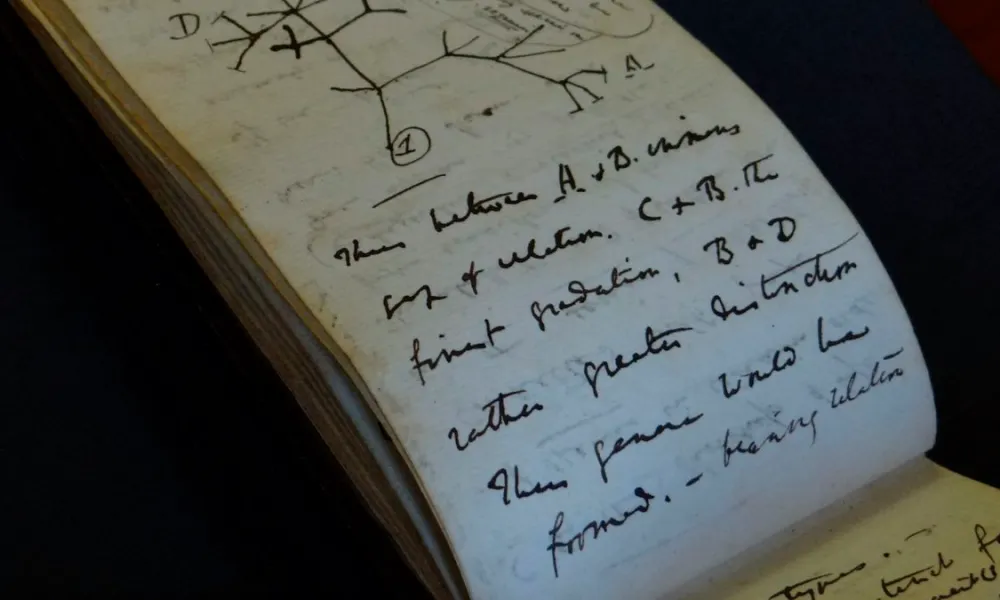 D
A
1
Thus between A & B. immens
gap of relation. C & B. the
finest gradation, B & D
rather greater distinction
Thus genera would be
formed. — bearing relation
types
tend